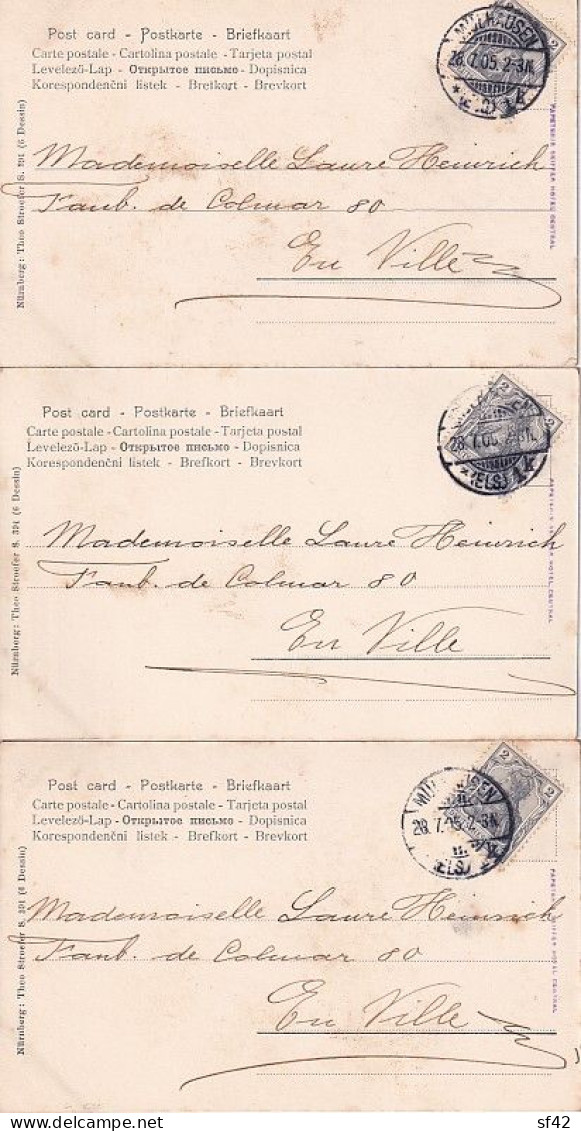 Post card - Postkarte - Briefkaart
Carte postale - Cartolina postale - Tarjeta postal
Levelező-Lap - Открытое письмо - Dopisnica
Korespondenční listek - Brefkort - Brevkort
MÜLHAUSEN
28.7.05. 2-3N.
2
Mademoiselle Laure Heinrich
Faub. de Colmar 80
En Ville
Nürnberg: Theo Stroefer S. 391 (6 Dessin)
PAPETERIE HOTEL CENTRAL
Post card - Postkarte - Briefkaart
Carte postale - Cartolina postale - Tarjeta postal
Levelező-Lap - Открытое письмо - Dopisnica
Korespondenční listek - Brefkort - Brevkort
28.7.05. 2-3N.
(ELS) 1k
2
2
Mademoiselle Laure Heinrich
Faub. de Colmar 80
En Ville
Nürnberg: Theo Stroefer S. 391 (6 Dessin)
HOTEL CENTRAL
Post card - Postkarte - Briefkaart
Carte postale - Cartolina postale - Tarjeta postal
Levelező-Lap - Открытое письмо - Dopisnica
Korespondenční listek - Brefkort - Brevkort
MÜLHAUSEN
28.7.05. 2-3N.
(ELS)
2
2
Mademoiselle Laure Heinrich
Faub. de Colmar 80
En Ville
Nürnberg: Theo Stroefer S. 391 (6 Dessin)
HOTEL CENTRAL
sf42